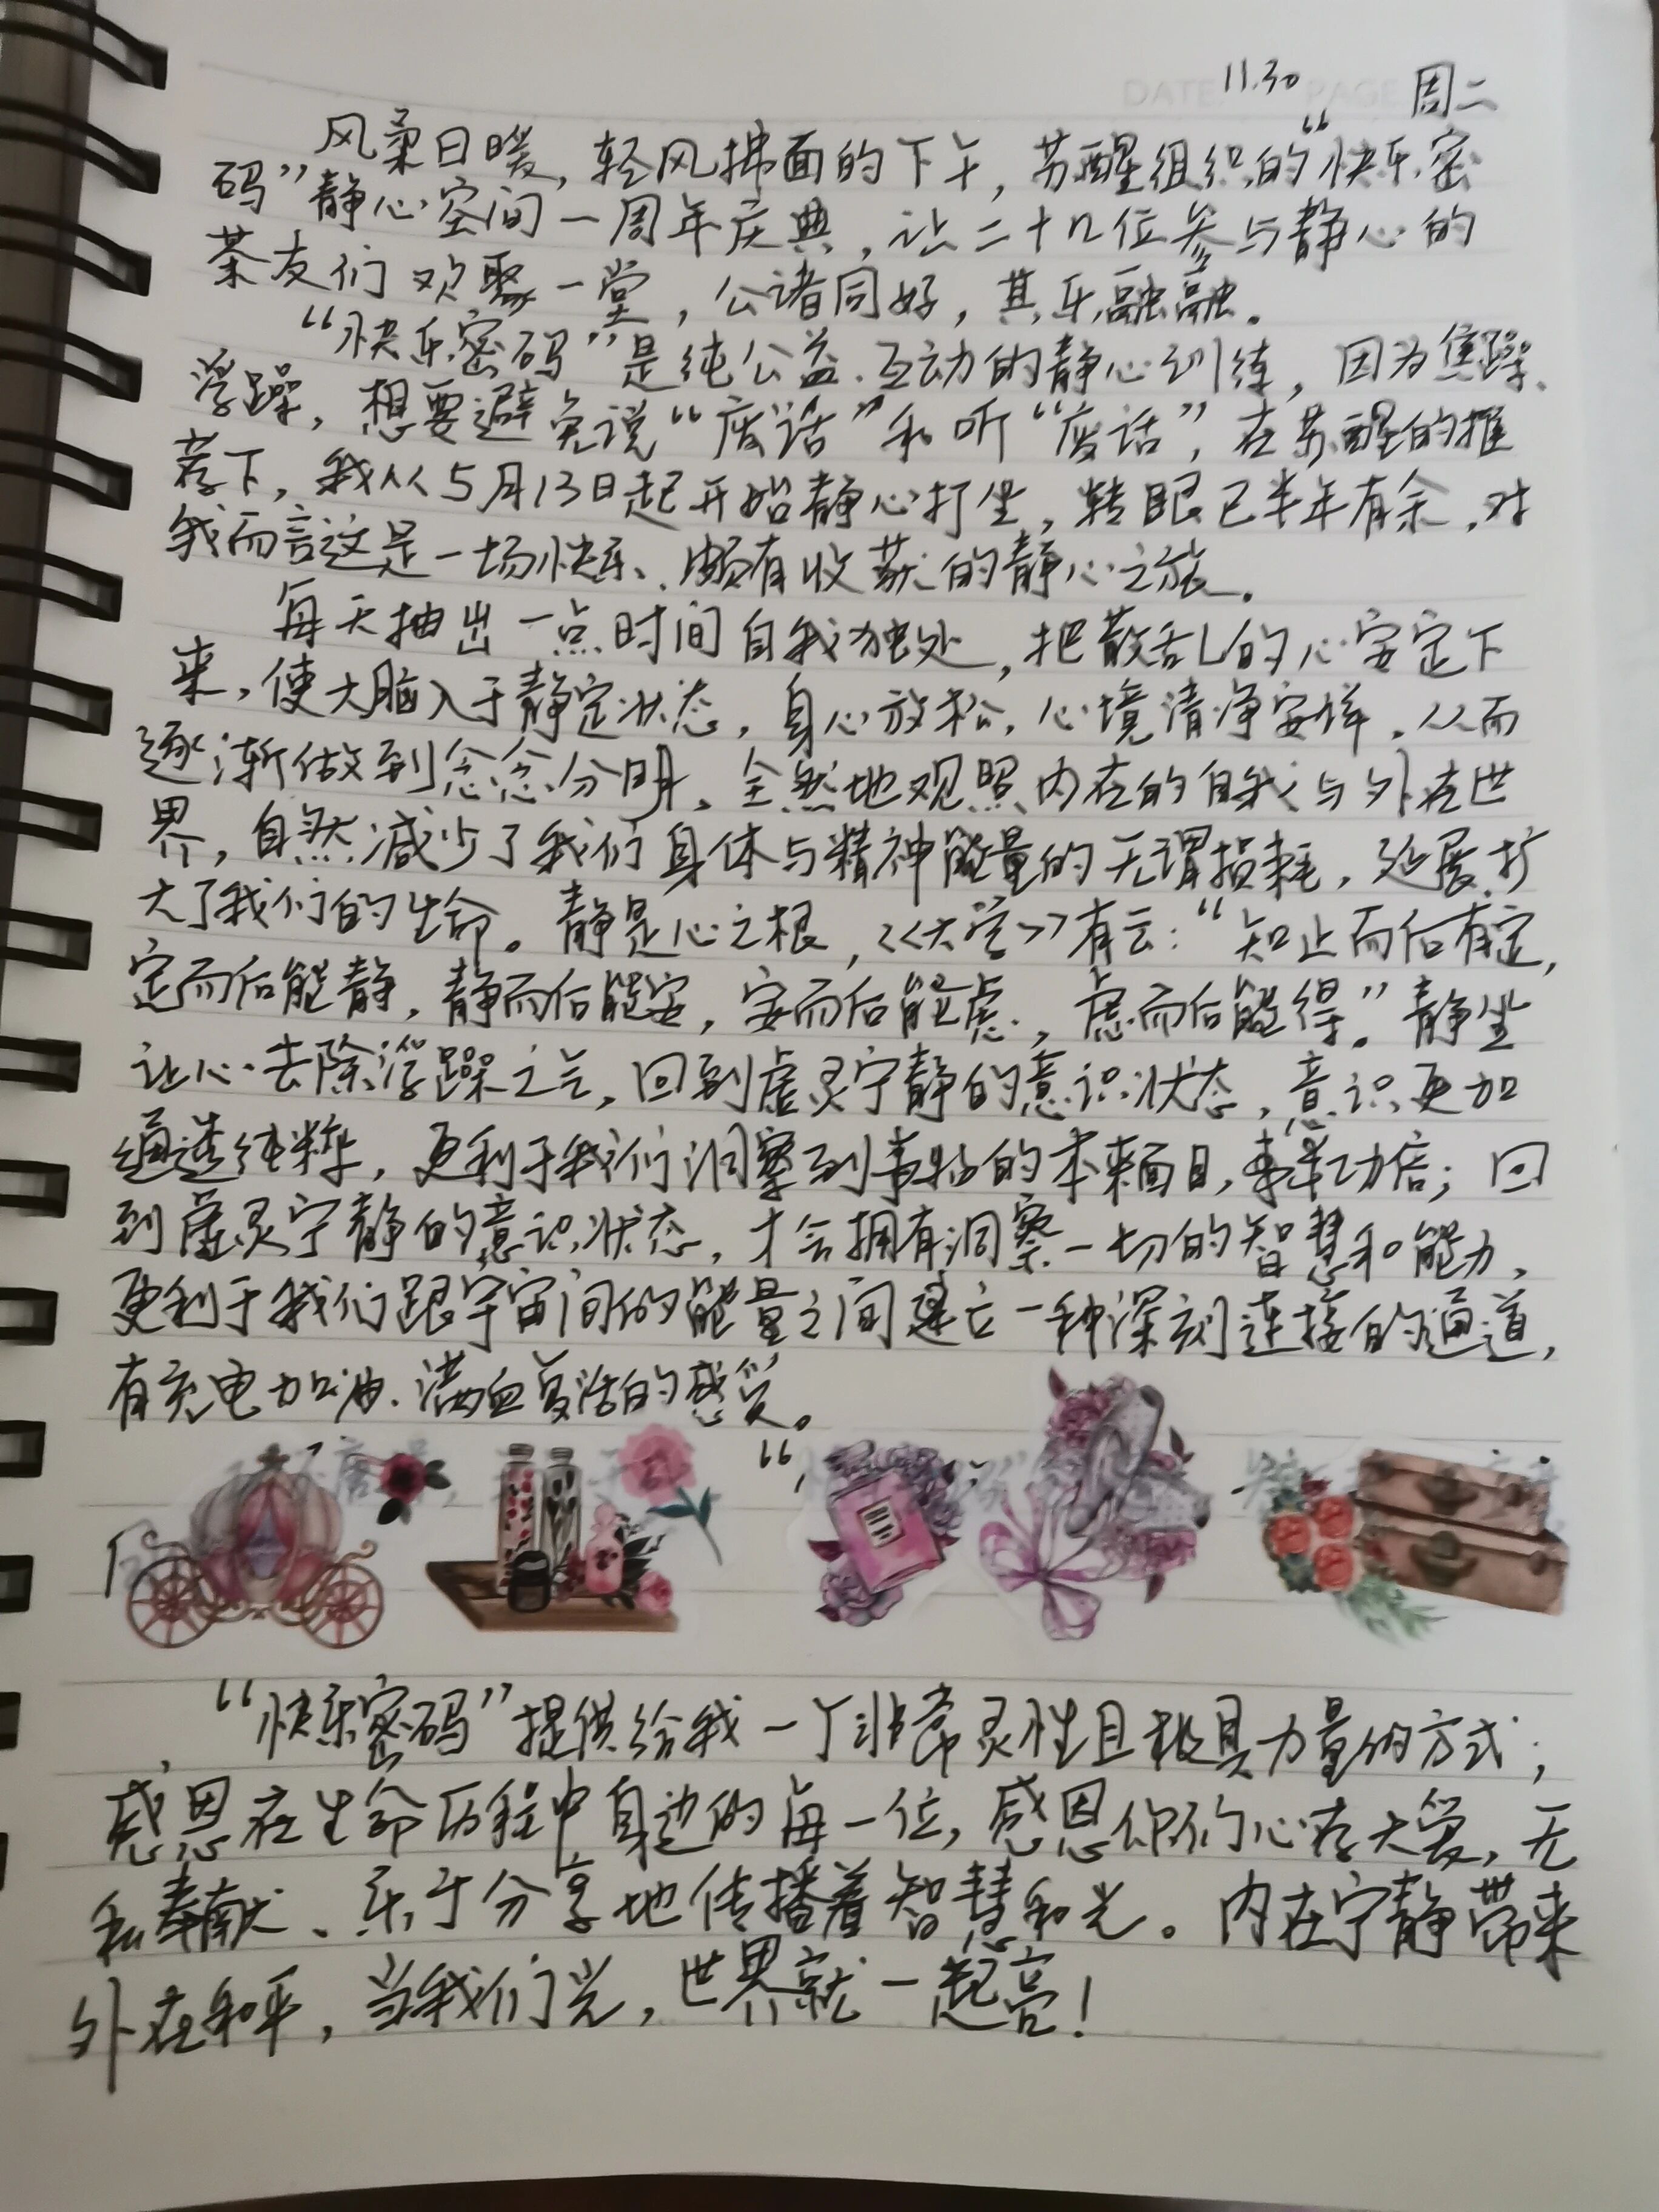 DATE 11.30 PAGE 周二
风柔日暖，轻风拂面的下午，苏醒组织的“快乐密
码”静心空间一周年庆典，让二十几位参与静心的
茶友们欢聚一堂，公诸同好，其乐融融。
“快乐密码”是纯公益、互动的静心训练，因为焦躁、
浮躁，想要避免说“废话”和听“废话”，在苏醒的推
荐下，我从5月13日起开始静心打坐，转眼已半年有余，对
我而言这是一场快乐、颇有收获的静心之旅。
每天抽出一点时间自我独处，把散乱的心安定下
来，使大脑入于静定状态，身心放松，心境清净安详，从而
逐渐做到念念分明，全然地观照内在的自我与外在世
界，自然减少了我们身体与精神能量的无谓损耗，延展、扩
大了我们的生命。静是心之根，《大学》有云：“知止而后有定，
定而后能静，静而后能安，安而后能虑，虑而后能得。”静坐
让心去除浮躁之气，回到虚灵宁静的意识状态，意识更加
通透纯粹，更利于我们洞察到事物的本来面目，事半功倍；回
到虚灵宁静的意识状态，才会拥有洞察一切的智慧和能力，
更利于我们跟宇宙间的能量之间建立一种深刻连接的通道，
有充电加油、满血复活的感觉。
“快乐密码”提供给我一个非常灵性且极具力量的方式；
感恩在生命历程中身边的每一位，感恩你们心存大爱，无
私奉献、乐于分享地传播着智慧和光。内在宁静带来
外在和平，当我们光，世界就一起亮！